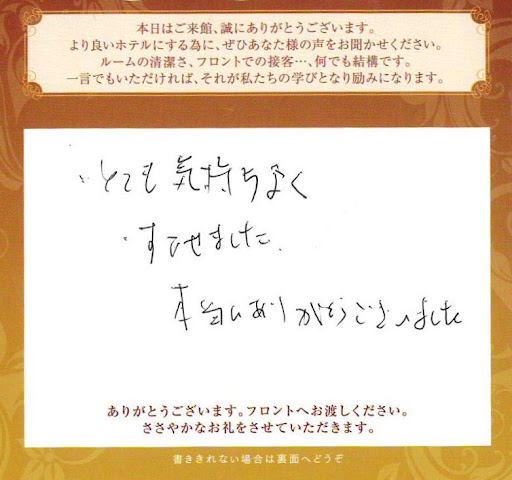 本日はご来館、誠にありがとうございます。
より良いホテルにする為に、ぜひあなた様の声をお聞かせください。
ルームの清潔さ、フロントでの接客…、何でも結構です。
一言でもいただければ、それが私たちの学びとなり励みになります。
・とても気持ちよく
・すごせました。
本当にありがとうございました
ありがとうございます。フロントへお渡しください。
ささやかなお礼をさせていただきます。
書ききれない場合は裏面へどうぞ